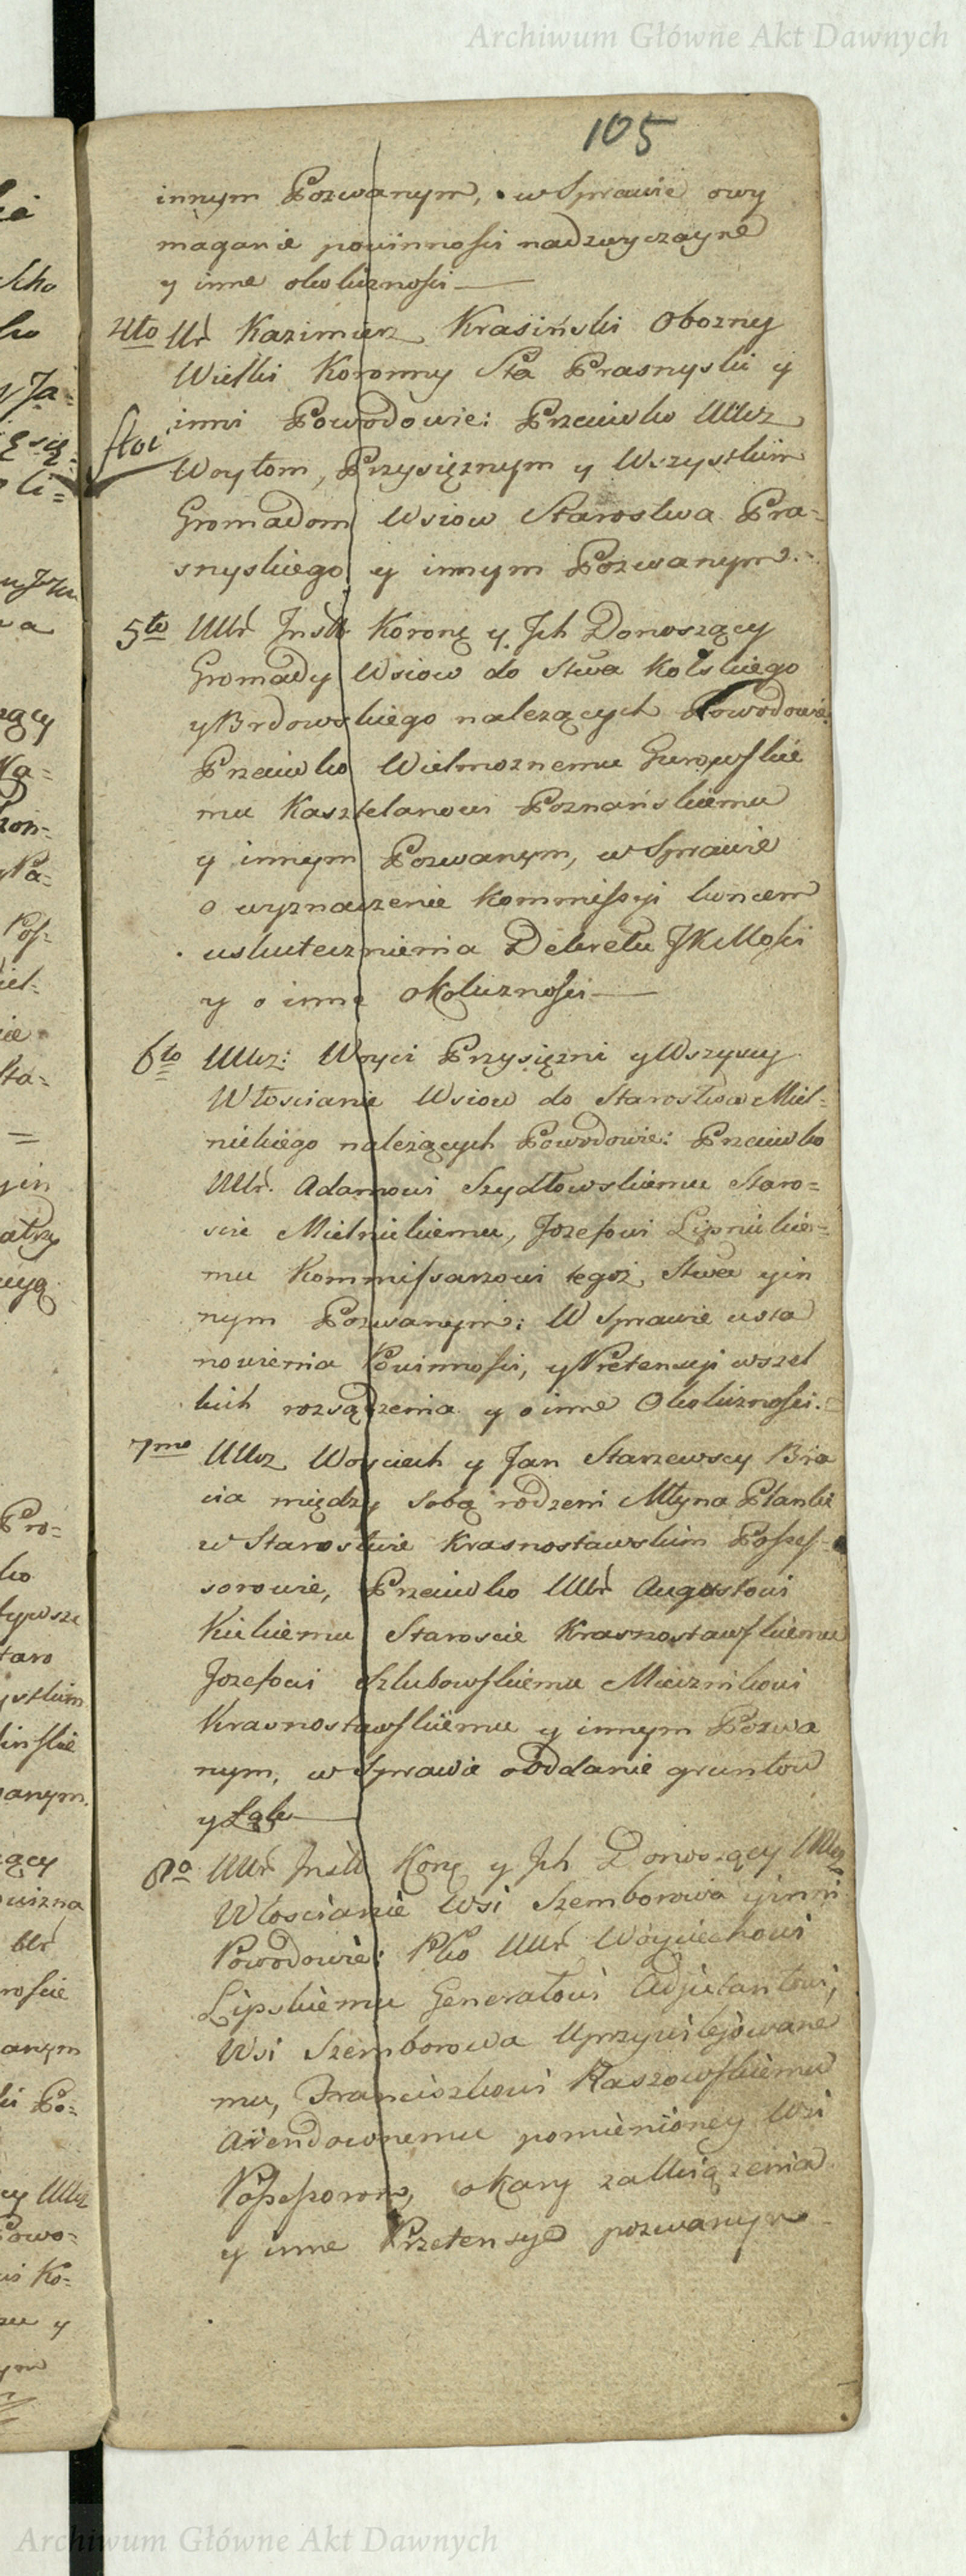 Archiwum Główne Akt Dawnych
105
innym Pozwanym, w Sprawie owy
maganie powinnosci nadzwyczayne
y inne okolicznosci
4to Ur Kazimierz Krasiński Obozny
Wielki Koronny Sta Prasnyski y
inni Powodowie: Przeciwko UUcz
stoi
Woytom, Przysięznym y Wszystkim
Gromadom Wsiow Starostwa Pra=
snyskiego y innym Pozwanym.
5to UUr Inst Koronę y Ich Donoszący
Gromady Wsiow do Stwa Kolskiego
y Brdowskiego nalezących Powodowie
Przeciwko Wielmoznemu Gurowskie
mu Kasztelanowi Poznańskiemu
y innym Pozwanym, w Sprawie
o wyznaczenie Kommissyi koncem
uskutecznienia Dekretu JKMosci
y o inne okolicznosci
6to UUcz: Woyci Przysięzni y Wszyscy
Włoscianie Wsiow do Starostwa Miel=
nickiego nalezących Powodowie: Przeciwko
UUr. Adamowi Szydłowskiemu Staro=
scie Mielnickiemu, Jozefowi Lipnickie=
mu Kommissarzowi tegoż Stwa y in
nym Pozwanym: W Sprawie usta
nowienia Powinnosci, y Pretensyi wszel
kich rozsądzenia y o inne Okolicznosci.
7mo UUcz Woyciech y Jan Starzewscy Bra
cia między sobą rodzeni Młyna Planki
w Starostwie Krasnostawskim Posses=
sorowie, Przeciwko UUr Augustowi
Kickiemu Staroscie Krasnostawskiemu
Jozefowi Szlubowskiemu Miecznikowi
Krasnostawskiemu y innym Pozwa
nym, w Sprawie o oddanie gruntow
y Łąk
8o UUr Inst Korę y Ich Donoszący UUcz
Włoscianie Wsi Szemborowa y inni
Powodowie: Pko UUr Woyciechowi
Lipskiemu Generałowi Adjutantowi,
Wsi Szemborowa Uprzywilejowane
mu, Franciszkowi Raszowskiemu
Arendownemu pomienioney Wsi
Possessorowi, o Kary zawiązenia
y inne Pretensye pozwanym
Archiwum Główne Akt Dawnych